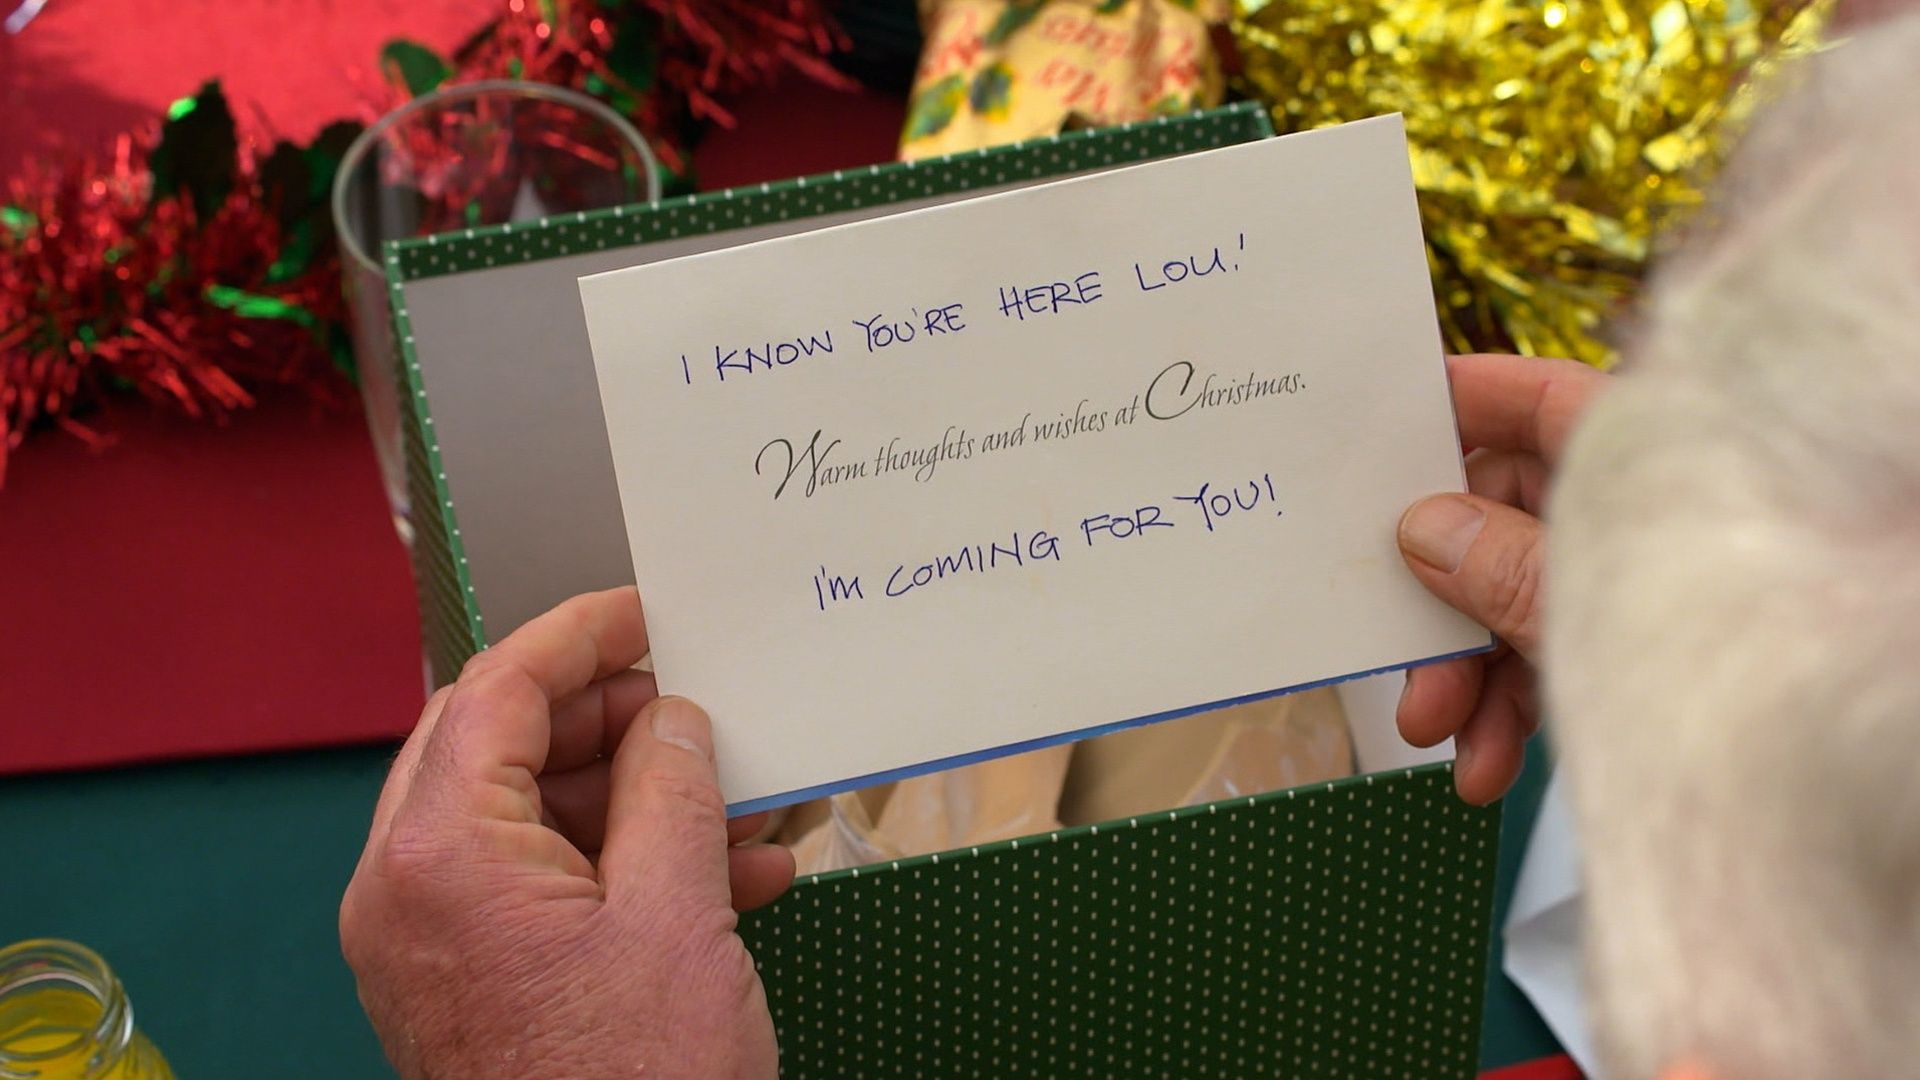 I KNOW YOU'RE HERE LOU!
Warm thoughts and wishes at Christmas.
I'm COMING FOR YOU!